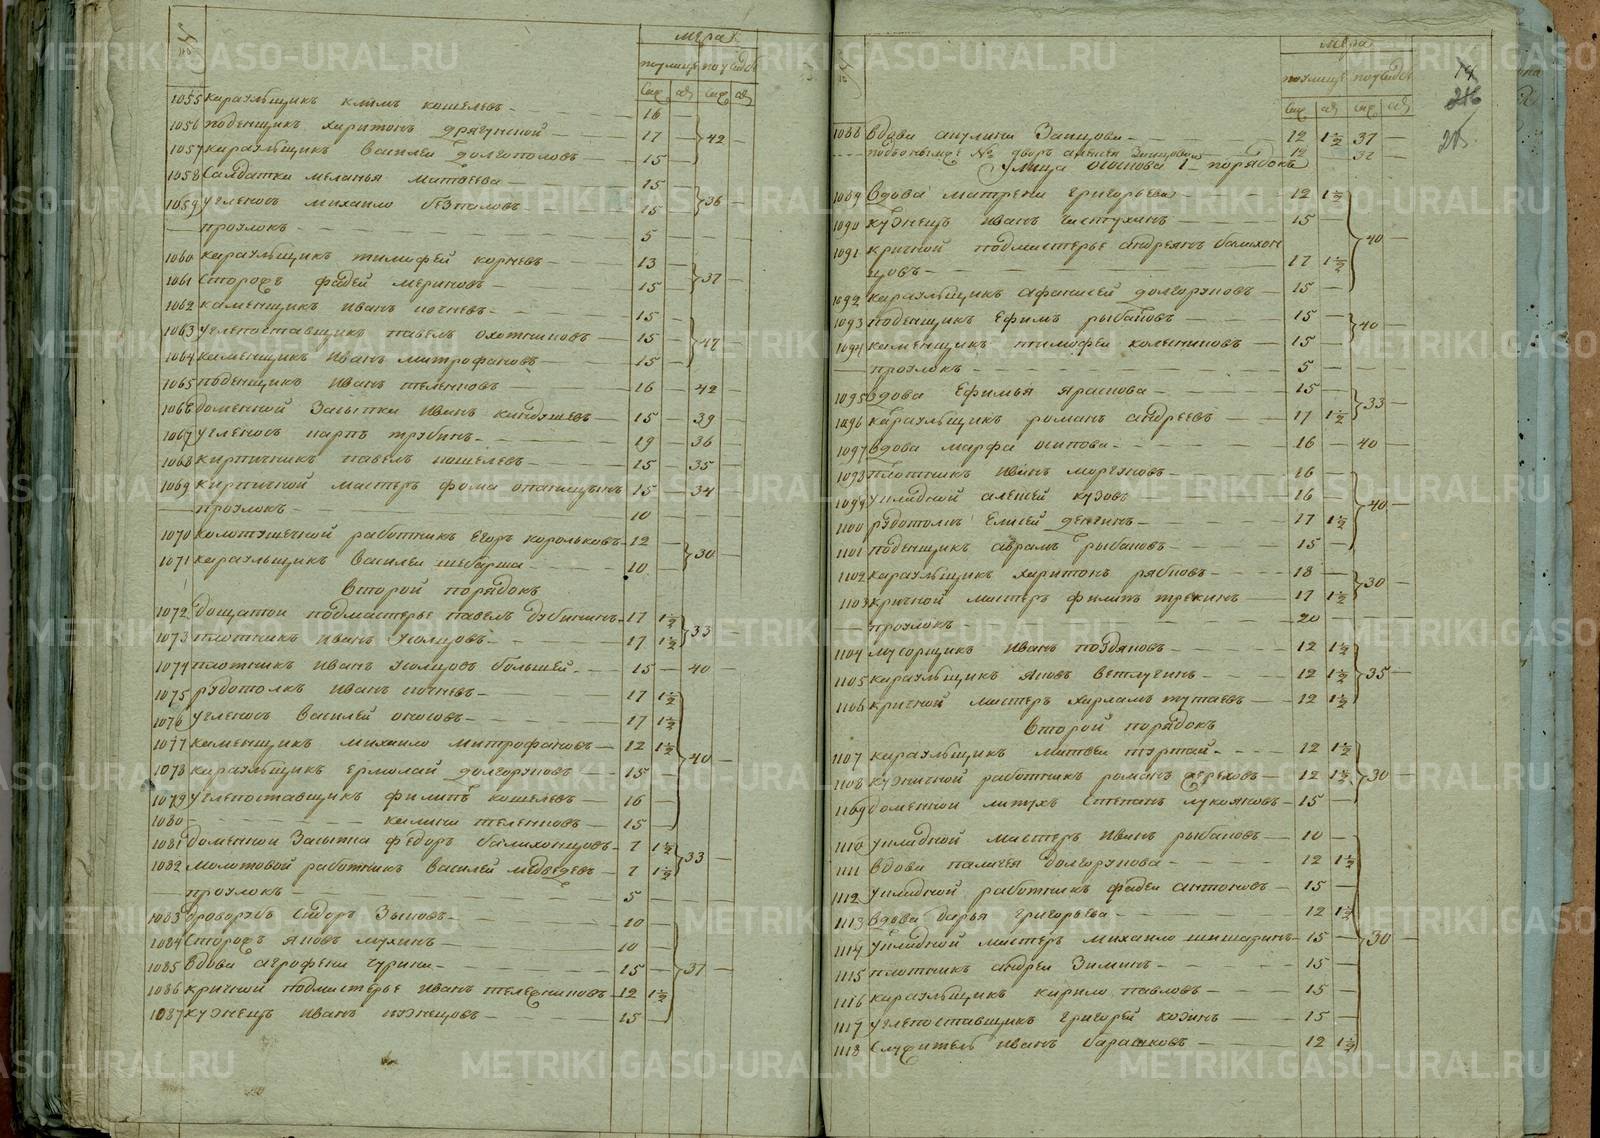 мера
по улице по усадьбе
саж ар саж ар
1055 караульщикъ климъ кошелевъ — 16 —
1056 поденщикъ харитонъ — 17 — 42 —
1057 караульщикъ василеи долгополовъ — 15 —
1058 салдатка меланья матвеева — 15 —
1059 угленосъ михаило безпаловъ — 15 — 36 —
— проулокъ — 5
1060 караульщикъ тимофей корневъ — 13 —
1061 сторожъ фадей мериновъ — 15 — 37 —
1062 каменщикъ иванъ кочневъ — 15 —
1063 углепоставщикъ павелъ охотниковъ — 15 — 47 —
1064 каменщикъ иванъ митрофановъ — 15 —
1065 поденщикъ иванъ теленковъ — 16 — 42 —
1066 доменной засыпка иванъ — 15 — 39 —
1067 угленосъ карпъ трубинъ — 19 — 36 —
1068 кирпичникъ павелъ кошелевъ — 15 — 35 —
1069 кирпичной мастеръ фома — 15 — 34 —
— проулокъ — 10
1070 колотушечной работникъ егоръ корольковъ — 12 —
1071 караульщикъ василеи шебарша — 10 — 30 —
Второй порядокъ
1072 дощатои подмастерье павелъ дубининъ — 17 1½
1073 плотникъ иванъ — 17 1½ 33 —
1074 плотникъ иванъ большей — 15 — 40 —
1075 рудотолкъ иванъ кочневъ — 17 1½
1076 угленосъ василей — 17 1½
1077 каменщикъ михаило митрофановъ — 12 1½
1078 караульщикъ ермолай долгоруковъ — 15 — 40 —
1079 углепоставщикъ филипъ кошелевъ — 16 —
1080 — калина теленковъ — 15 —
1081 доменной засыпка федоръ балихонцовъ — 7 1½
1082 молотовой работникъ василей медведевъ — 7 1½ 33 —
— проулокъ — 5
1083 дроворубъ сидоръ зыковъ — 10 —
1084 сторожъ яковъ мухинъ — 10 —
1085 вдова агрофена чурина — 15 — 37 —
1086 кричной подмастерье иванъ — 12 1½
1087 кузнецъ иванъ кузнецовъ — 15 —
14
216
мера
по улице по усадьбе
саж ар саж ар
1088 вдова акулина заицова — 12 1½ 37 —
12 — 37
улица осокова 1 порядокъ
1089 вдова матрена григорьева — 12 1½
1090 кузнецъ иванъ чистухинъ — 15 —
1091 кричной подмастерье андреянъ балихон
цовъ — 17 1½ 40 —
1092 караульщикъ афанасей долгоруковъ — 15 —
1093 поденщикъ ефимъ рыбаковъ — 15 —
1094 каменщикъ тимофеи калениковъ — 15 — 40 —
— проулокъ — 5 —
1095 вдова ефимья — 15 —
1096 караульщикъ романъ андреевъ — 17 1½ 33 —
1097 вдова марфа осипова — 16 — 40 —
1098 плотникъ иванъ моргуновъ — 16 —
1099 укладной алексей кузовъ — 16 —
1100 рудотолкъ елисей — 17 1½ 40 —
1101 поденщикъ аврамъ рыбаковъ — 15 —
1102 караульщикъ харитонъ рябковъ — 18 —
1103 кричной мастеръ филипъ трекинъ — 17 1½ 30 —
— проулокъ — 20 —
1104 мусорщикъ иванъ поздяковъ — 12 1½
1105 караульщикъ яковъ ветлугинъ — 12 1½ 35 —
1106 кричной мастеръ харламъ тутаевъ — 12 1½
Второй порядокъ
1107 караульщикъ матвеи — 12 1½
1108 кузничной работникъ романъ — 12 1½ 30 —
1109 доменной степанъ лукояновъ — 15 —
1110 укладной мастеръ иванъ рыбаковъ — 10 —
1111 вдова палагея долгорукова — 12 1½
1112 укладной работникъ фадеи антоновъ — 15 —
1113 вдова дарья григорьева — 12 1½
1114 укладной мастеръ михаило шишаринъ — 15 — 30 —
1115 плотникъ андреи зиминъ — 15 —
1116 караульщикъ кирило павловъ — 15 —
1117 углепоставщикъ григорей козинъ — 15 —
1118 служитель иванъ барашковъ — 12 1½
METRIKI.GASO-URAL.RU